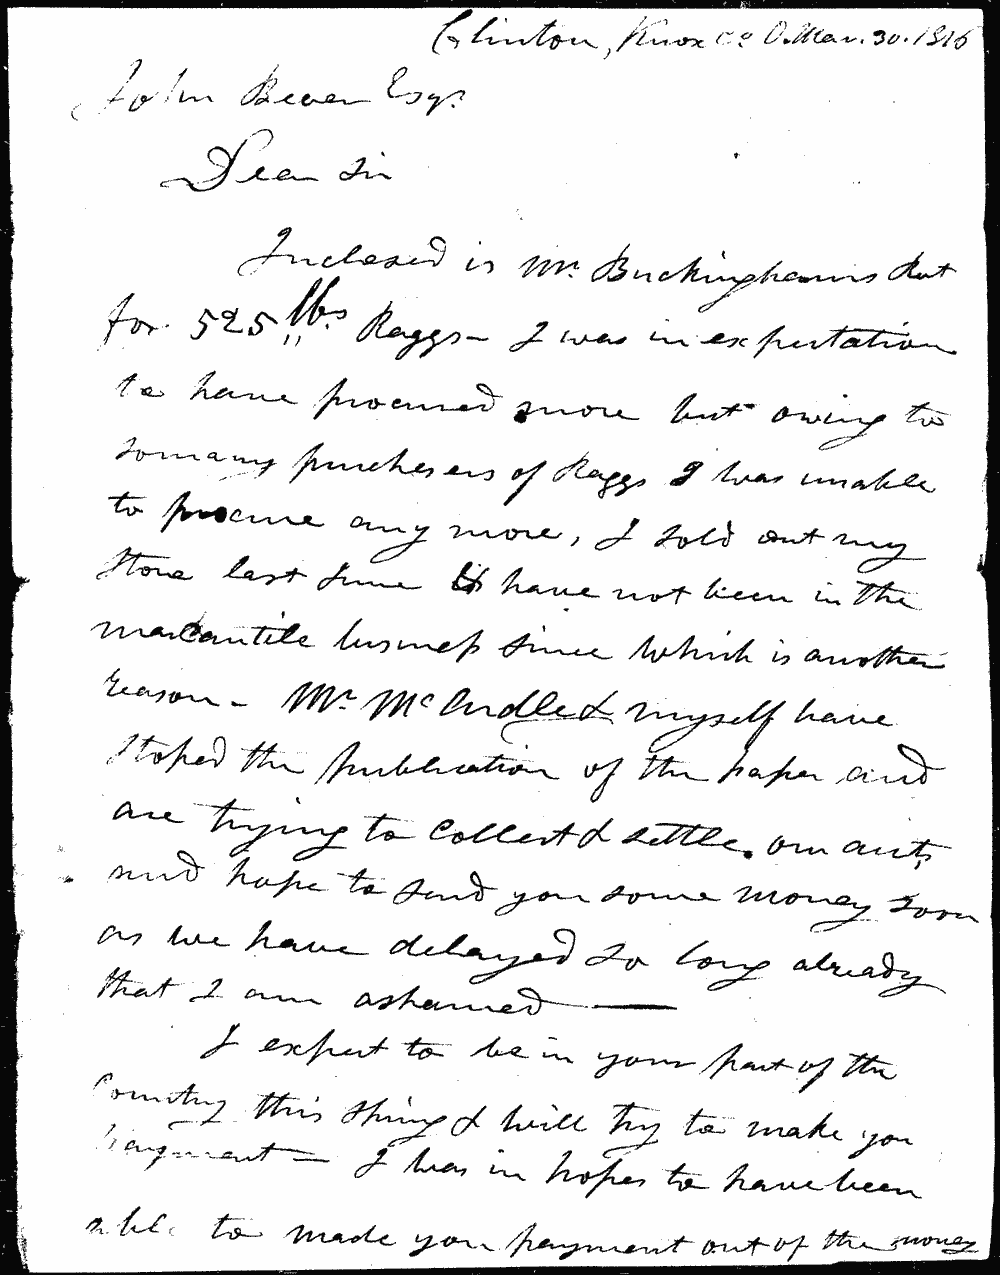 Clinton, Knox Co O. Mar. 30. 1816
John Bever Esqr.
Dear Sir
Inclosed is Mr. Buckinghams Rect
for 525 lbs Raggs - I was in expectation
to have procured more but owing to
somany purchesers of Raggs I was unable
to procure any more, I sold out my
Store last June & have not been in the
marcantile business since which is another
reason - Mr. McArdle & myself have
stoped the publication of the paper and
are trying to Collect & settle our accts,
and hope to send you some money soon
as we have delayed so long already
that I am ashamed —
I expect to be in your part of the
Country this spring & will try to make you
payment — I was in hopes to have been
able to made you payment out of the money